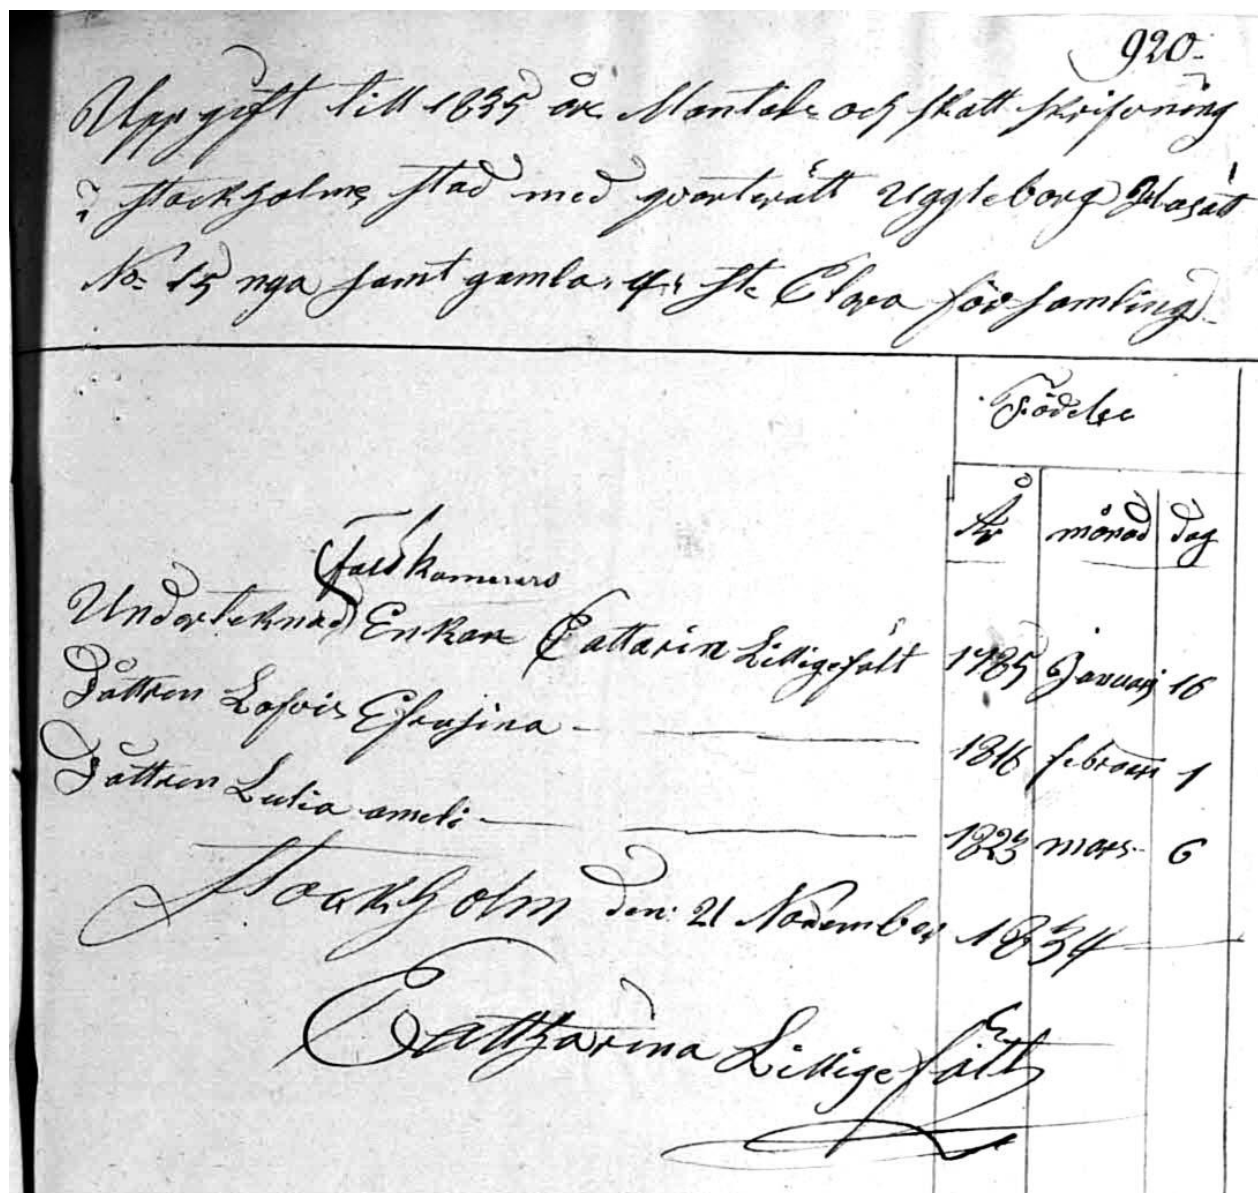 920.
Uppgift till 1835 års Mantals och skatt skrifvning
i Stockholms stad med qvarterätt Uggleborg
No: 15 nya samt gamla: 4: St: Clara församling
Födelse
År månad dag
Fältkamerers
Underteknad Enkan Cattarin Lilligefält 1785 Januarj 16
Dåttren Lofvis Efrosina 1816 februari 1
Dåttren Lutia ameli 1823 mars 6
Stockholm den: 21 November 1834
Cattharina Lilligefält